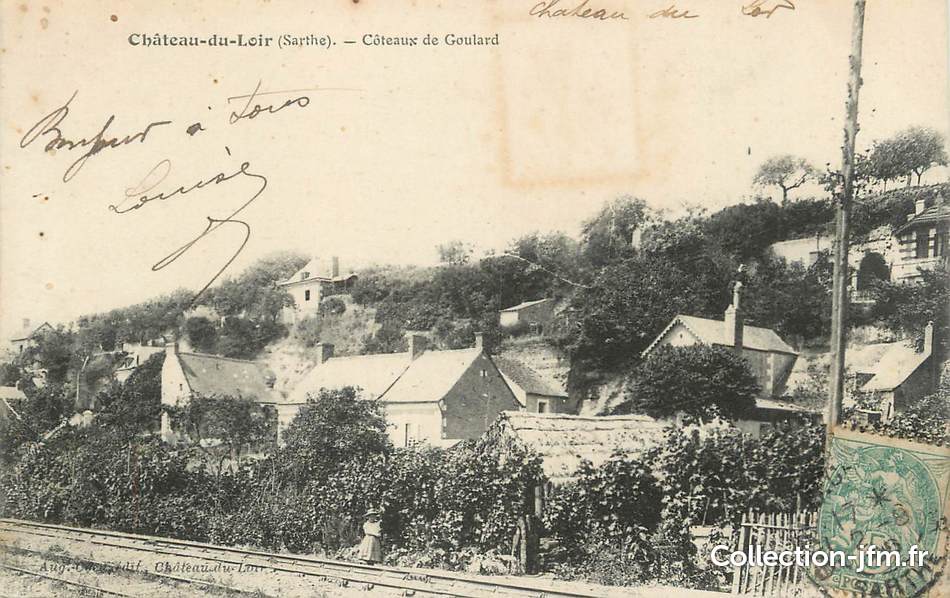 Chateau du Loir
Château-du-Loir (Sarthe). – Côteaux de Goulard
Bonjour à tous
Louise
Château-du-Loir
Collection-jfm.fr
SARTHE